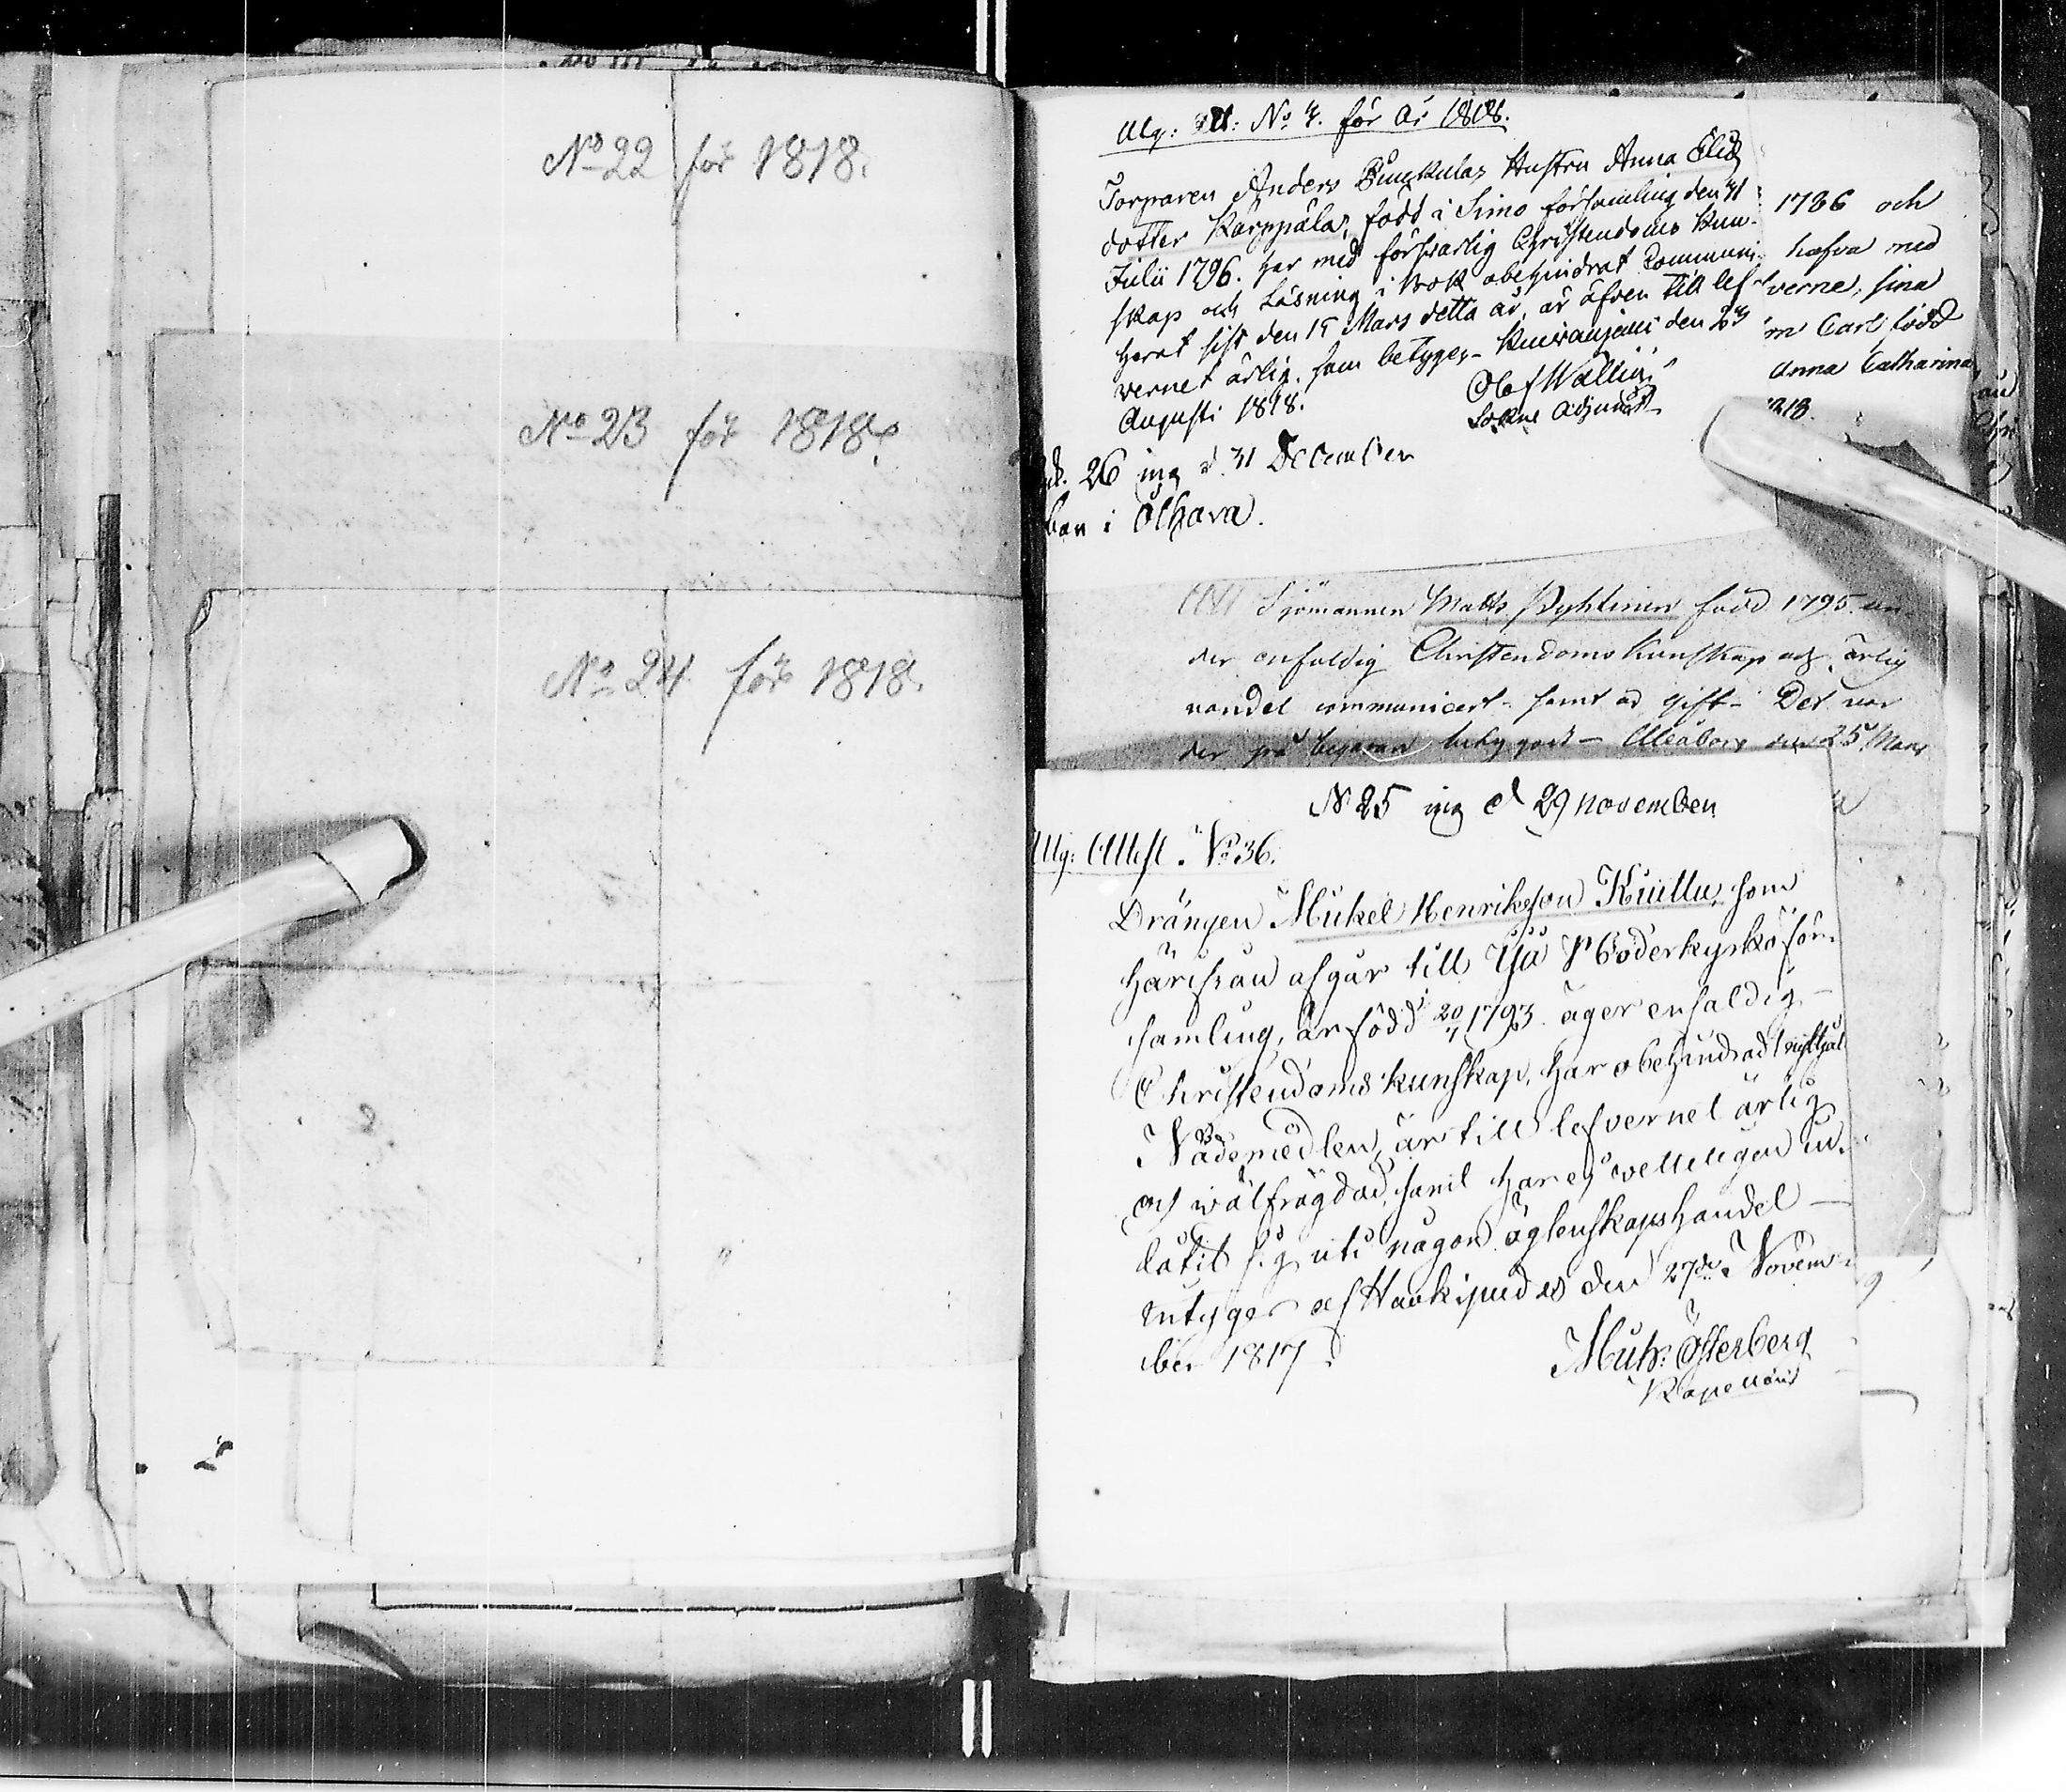 No 22 för 1818.
No 23 för 1818.
No 24 för 1818.
Utg: Att: No 4. för År 1818.
Torparen Anders Hustru Anna Elis
dotter Karppala, född i Simo församling den 31
Julii 1796. har med försvarlig Christendoms kun-
skap och Läsning i bok obehindrat Communi-
cerat sist den 15 Mars detta år, är äfven till lef-
vernet ärlig, som betyges Kuivaniemi den 23
Augusti 1818. Olof Wallin
Sokne Adjunct
1786 och
hafva med
verne, sina
Carl född
Anna Catharina
1818.
26 ing d. 31 December
i Olhava.
Att Sjömannen Matts Pyhtinen född 1795. un
der enfaldig Christendoms Kunskap och ärlig
vandel communicert samt ogift Det var
der på begäran betygadt Uleåborg den 25 Mars
No 25 ing d 29 november
Utg: Attest No 36.
Drängen Mickel Henriksson Kuttu, som
härifrån afgår till Ijå Moderkyrko för-
samling, är född 20/4 1793. äger enfaldig
Christendoms kunskap, har obehindradt nyttjat
Nådemedlen, är till lefvernet ärlig
och wälfrägdad, samt har ej vetterligen in-
låtit sig uti någon ägtenskapshandel
intyger af Haukipudas den 27de Novem-
ber 1817. Mich: Österberg
Kapellan